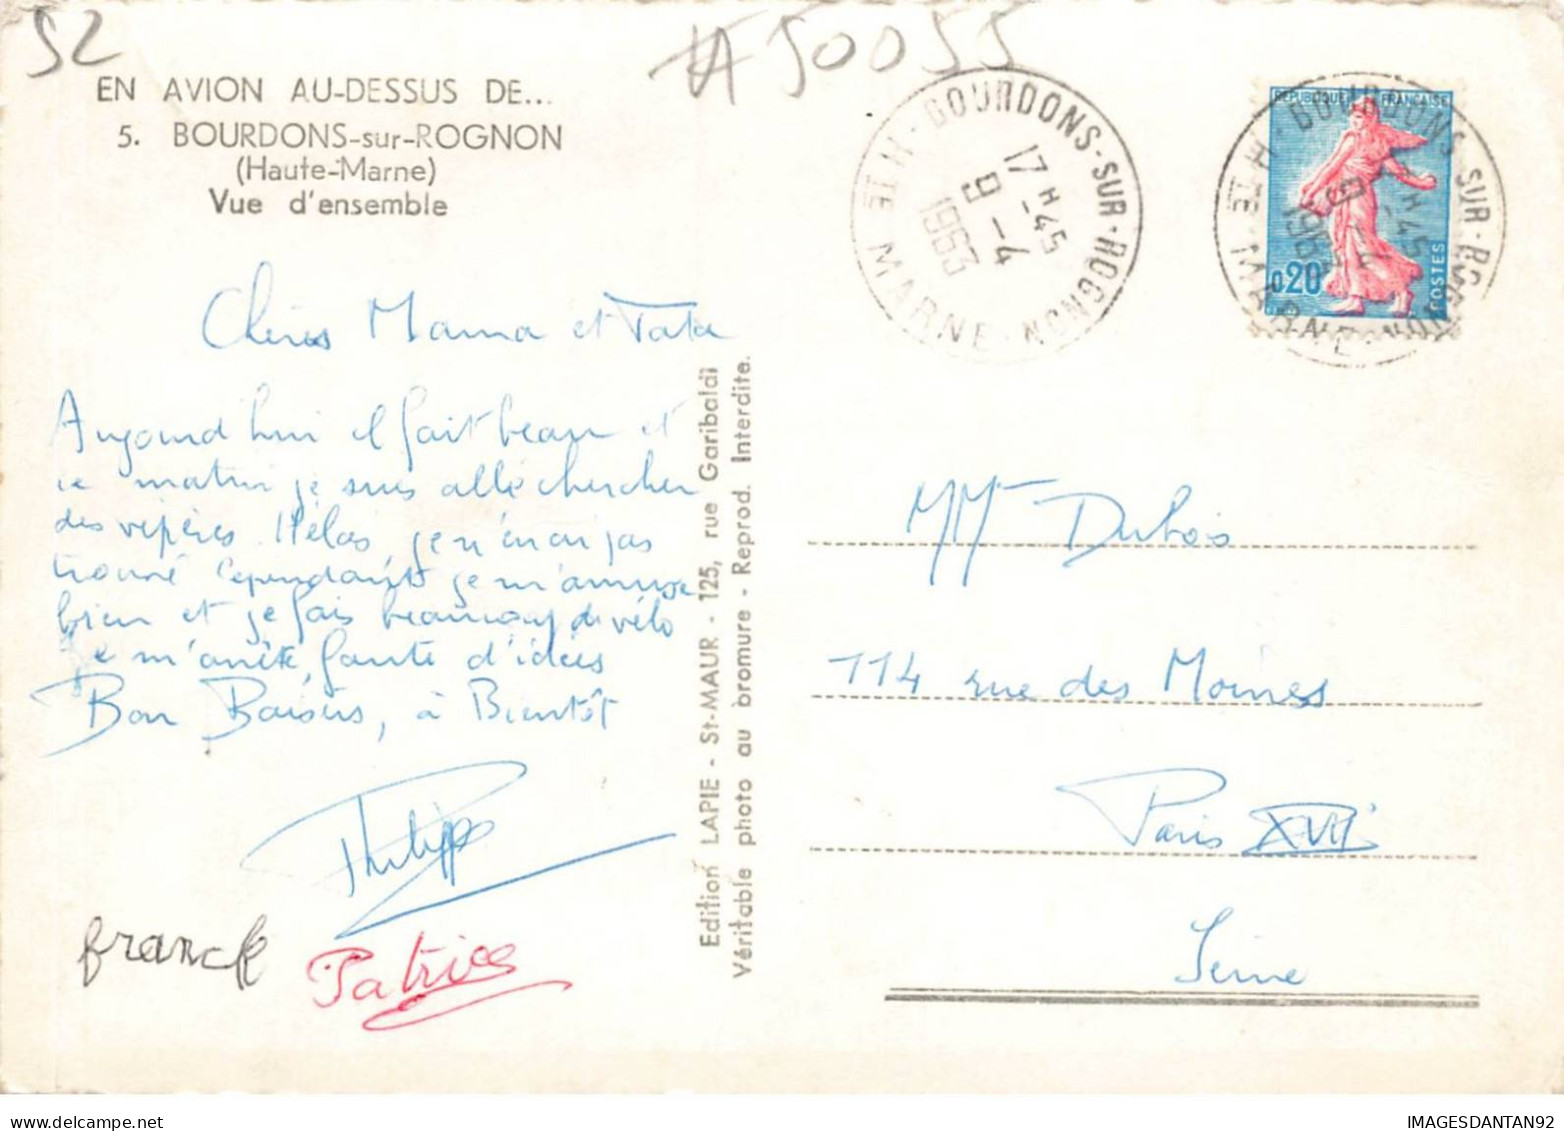 52
#50055
EN AVION AU-DESSUS DE...
5. BOURDONS-sur-ROGNON
(Haute-Marne)
Vue d'ensemble
Hte MARNE · BOURDONS-SUR-ROGNON
17H45
9-4
1963
REPUBLIQUE FRANÇAISE
0,20
POSTES
Hte MARNE · BOURDONS-SUR-ROGNON
17H45
9-4
1963
Chères Mama et Tata
Aujourd'hui il fait beau et
ce matin je suis allé chercher
des vipères. Hélas, je n'en ai pas
trouvé cependant je m'amuse
bien et je fais beaucoup de vélo
Je m'arrête faute d'idées
Bon Baisers, à Bientôt
Philippe
franck
Patrice
Edition LAPIE - St-MAUR - 125, rue Garibaldi
Véritable photo au bromure - Reprod. Interdite.
MMme Dubois
114 rue des Moines
Paris XVII
Seine
IMAGESDANTAN92